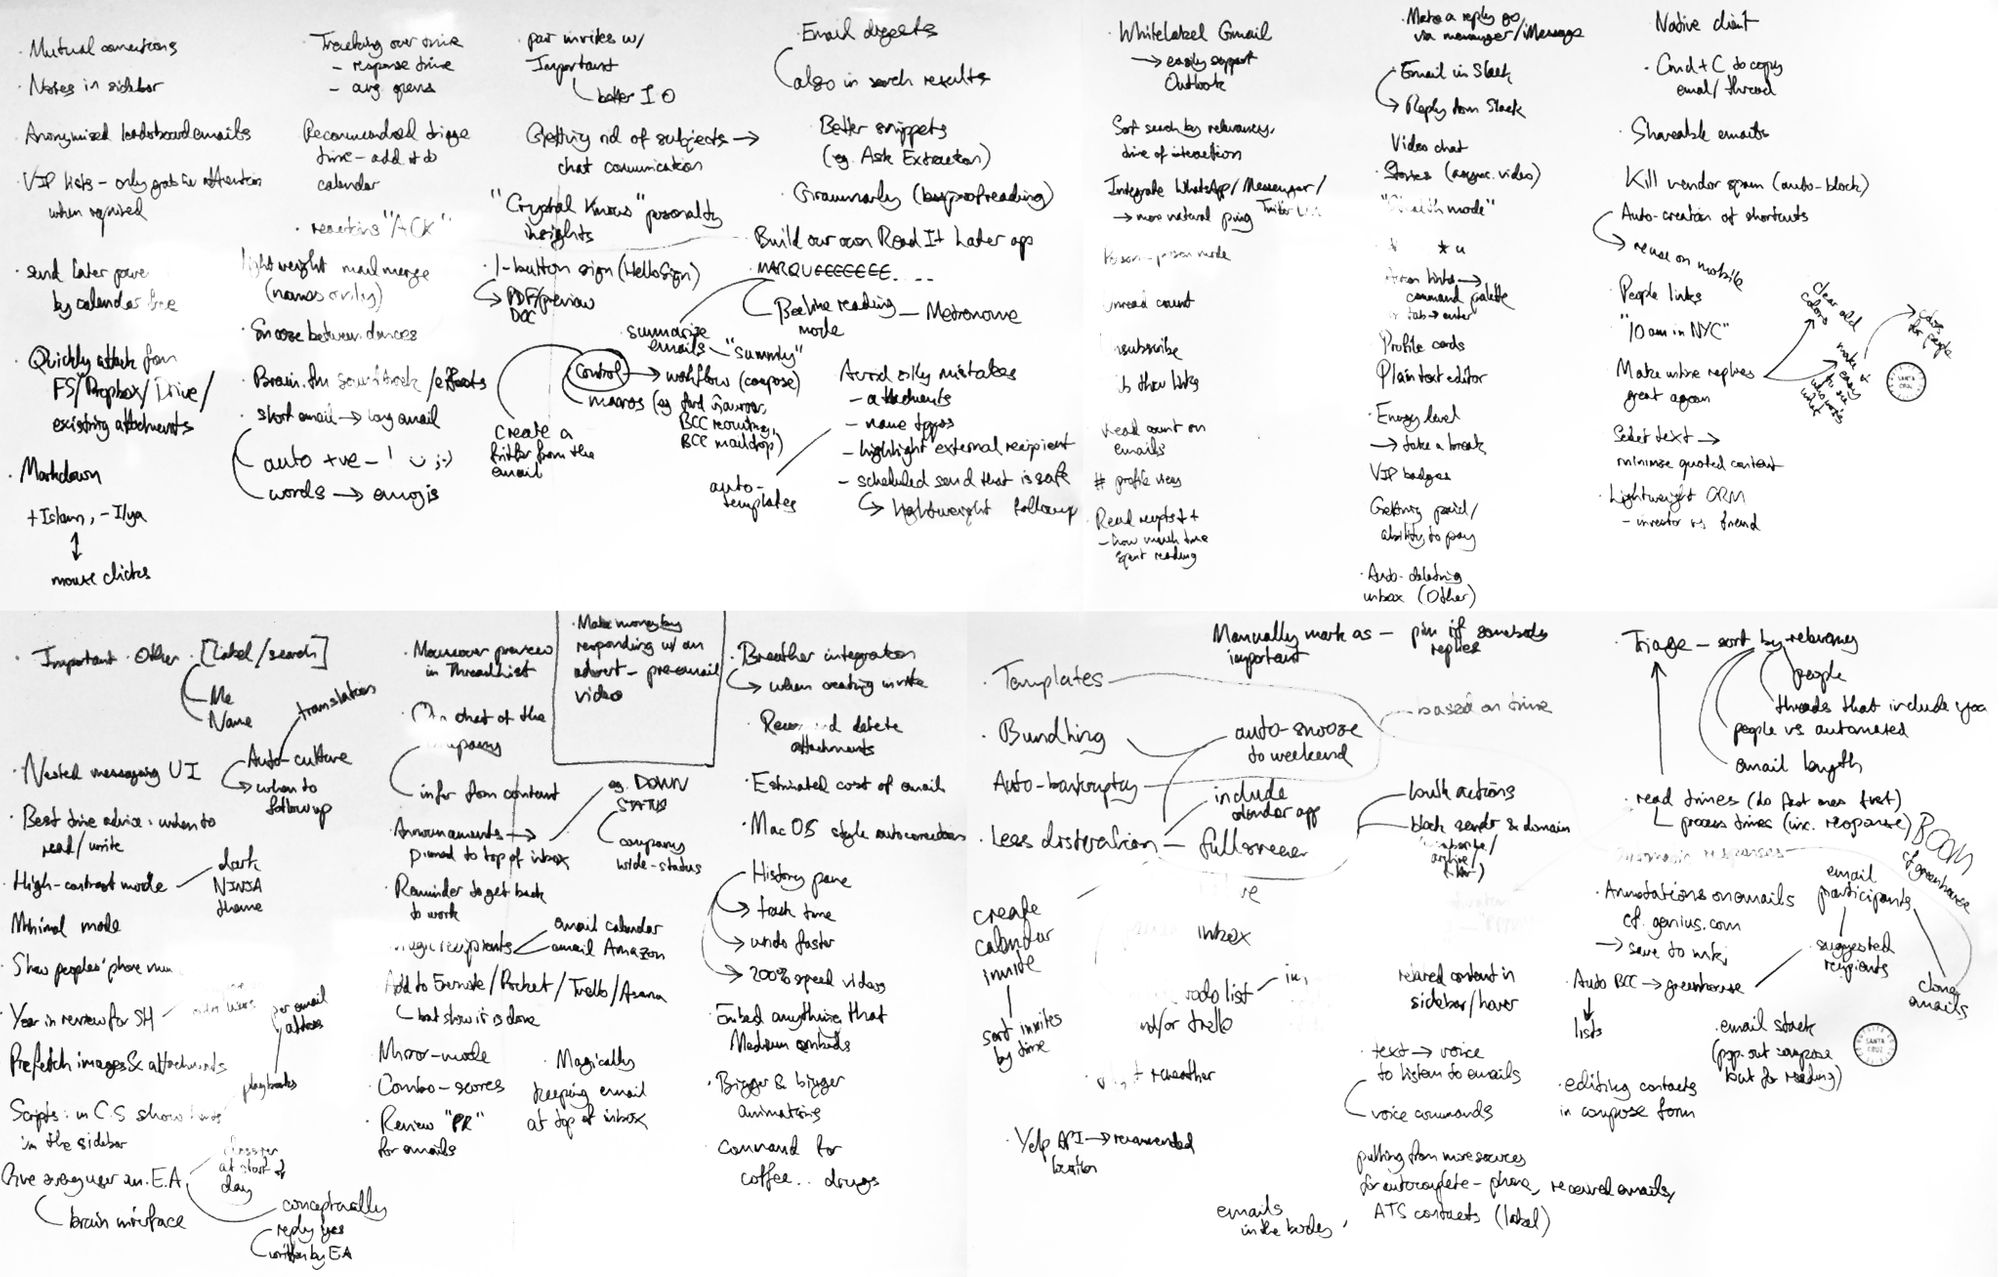 · Mutual connections
· Notes in sidebar
· Anonymised leaderboard emails
· VIP lists – only grab attention
when required
· send later
by calendar
· Quickly attach from
FS/Dropbox/Drive/
existing attachments
· Markdown
+Islam, – Ilya
↕
mouse clicks
· Tracking our time
– response time
– avg opens
Recommended triage
time – add it to
calendar
· reactions "ACK"
lightweight mail merge
(names only)
· Snooze between devices
· Brain.fm soundtrack/effects
· short email → long email
auto +ve – ! ☺ ;-)
words → emojis
· pair invites w/
Important
better I O
Getting rid of subjects →
chat communication
"Crystal Knows" personality
insights
· 1-button sign (HelloSign)
→ PDF/preview
DOC
· summarize
emails – "Summly"
Control → workflow (compose)
macros
BCC recruiting,
BCC maildrop)
create a
filter from the
email
auto-
templates
· Email digests
also in search results
Better snippets
(eg. Ask Extraction)
· Grammarly
· Build our own Read It Later app
· MARQUEEEEEEE. . . .
Beeline reading – Metronome
mode
Avoid silly mistakes
– attachments
– name typos
– highlight external recipient
– scheduled send that is safe
↳ lightweight followup
· Whitelabel Gmail
→ easily support
Outlook
Sort search by relevancy,
time of interaction
Integrate WhatsApp/Messenger/
→ more natural ping
unread count
links
read count on
emails
# profile views
· Read receipts ++
– how much time
spent reading
· Make a reply go
via messenger/iMessage
· Email in Slack
→ Reply from Slack
Video chat
· Stories (async. video)
* u
command palette
tab → enter
Profile cards
· Plain text editor
· Energy level
→ take a break
VIP badges
Getting paid/
ability to pay
· Auto-deleting
inbox (Other)
· Native client
· Cmd+C to copy
email/thread
· Shareable emails
· Kill vendor spam (auto-block)
Auto-creation of shortcuts
→ reuse on mobile
· People links
· "10 am in NYC"
· Make inline replies
great again
Select text →
minimise quoted content
· Lightweight CRM
– investor vs friend
clear old
colors
make it
easy
to see
who wrote
what
colors
for people
SANTA
CRUZ
· Important · Other · [Label/search]
Me
Name
· Nested messaging UI
Auto-culture
→ when to
follow up
translations
· Best time advice: when to
read/write
· High-contrast mode – dark
NINJA
theme
Minimal mode
· Show peoples' phone
· Year in review for SH
per email
address
Prefetch images & attachments
playbooks
Scripts: in C.S show
in the sidebar
Give every user an E.A
brain interface
at start of
day
conceptually
reply yes
written by E.A
· Mouseover preview
in ThreadList
chat of the
company
infer from content
Announcements →
pinned to top of inbox
eg. DOWN
STATUS
company
wide-status
· Reminder to get back
to work
recipients
email calendar
email Amazon
Add to Evernote/Pocket/Trello/Asana
but show it is done
Mirror-mode
Combo-scores
· Review "PR"
for emails
· Magically
keeping email
at top of inbox
· Make money by
responding w/ an
advert – pre-email
video
· Breather integration
→ when creating invite
delete
attachments
· Estimated cost of email
· MacOS style autocorrections
· History pane
→ track time
→ undo faster
→ 200% speed videos
Embed anything that
Medium embeds
· Bigger & bigger
animations
· Command for
coffee.. drugs
Manually mark as – pin if somebody
important replies
· Templates
· Bundling
Auto-bankruptcy
· Less distraction – fullscreen
auto-snooze
to weekend
– based on time
include
calendar app
bulk actions
block sender & domain
create
calendar
invite
sort invites
by time
inbox
todo list
Trello
weather
· Yelp API → recommended
location
emails
in the bodies,
related content in
sidebar/hover
· text → voice
to listen to emails
voice commands
pulling from more sources
for autocomplete – phone, received emails,
ATS contacts (label)
· Triage – sort by relevancy
people
threads that include you
people vs automated
email length
· read times (do fast ones first)
process times (inc. response)
BOOM
cf. greenhouse
· Annotations on emails
cf. genius.com
→ save to wiki
email
participants
Auto BCC → greenhouse
lists
suggested
recipients
clone
emails
· email stack
(pop-out compose
but for reading)
SANTA
CRUZ
· editing contacts
in compose form